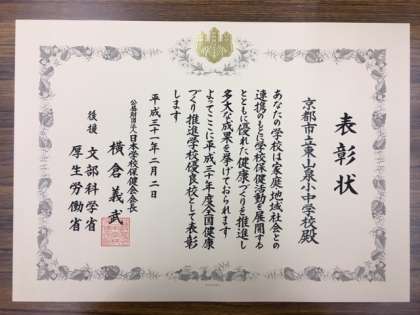 表彰状
京都市立東山泉小中学校殿
あなたの学校は家庭地域社会との
連携のもとに学校保健活動を展開する
とともに優れた健康づくりを推進し
多大な成果を挙げておられます
よってここに平成三十年度全国健康
づくり推進学校優良校として表彰
します
平成三十一年二月二日
公益財団法人日本学校保健会会長
横倉義武
後援 文部科学省
厚生労働省